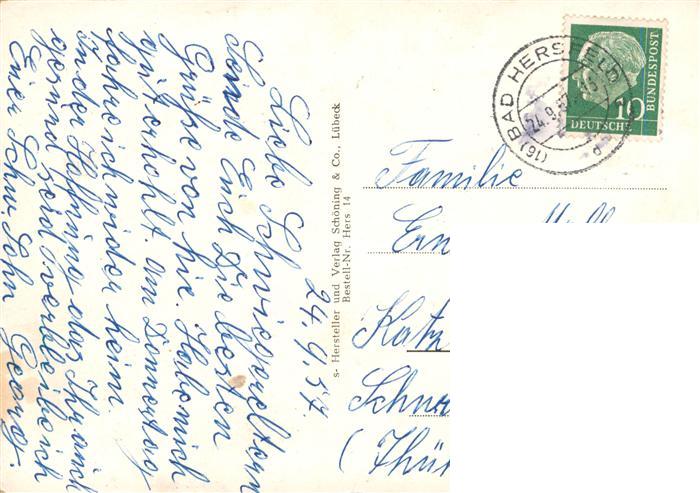 24.9.57.
Liebe Schwiegereltern
Sende Euch Die besten
Grüße von hir. Habe mich
gut erhohlt. am Donnerstag
fahre ich wider heim.
in der Hoffnung das Ihr auch
gesund seid verbleibe ich
Euer Schw. Sohn Georg.
s- Hersteller und Verlag Schöning & Co., Lübeck
Bestell-Nr. Hers 14
(16) BAD HERSFELD
24.9.57
d
10
DEUTSCHE
BUNDESPOST
Familie
Ern
Katz
Schne
(Thür